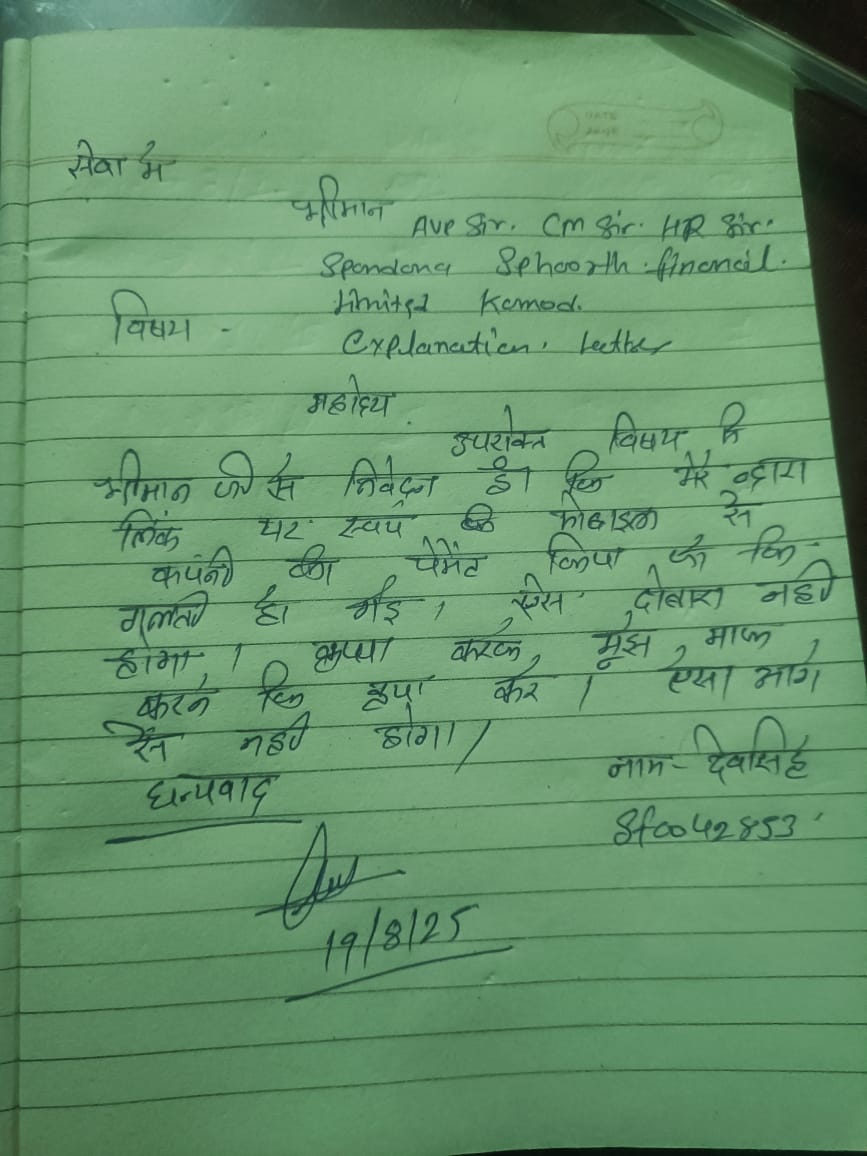 DATE
PAGE
सेवा में
श्रीमान AVP Sir. CM Sir. HR Sir.
Spandana Sphoorth financil.
limited Kamod.
विषय - Explanation. Leetter
महोद्य
उपरोक्त विषय कि
श्रीमान जी से निवेदन है। कि मेरे व्दारा
लिंक पर स्वयं के मोबाइल से
कंपनी का पेमेंट किया जो कि
गलती हो गई। ऐसा दोबारा नही
होगा। कृप्या करके मुझे माफ
करने कि कृपा करे। ऐसा आगे
से नही होगा।
धन्यवाद
नाम - देवसिंह
Sf0042853
19/8/25